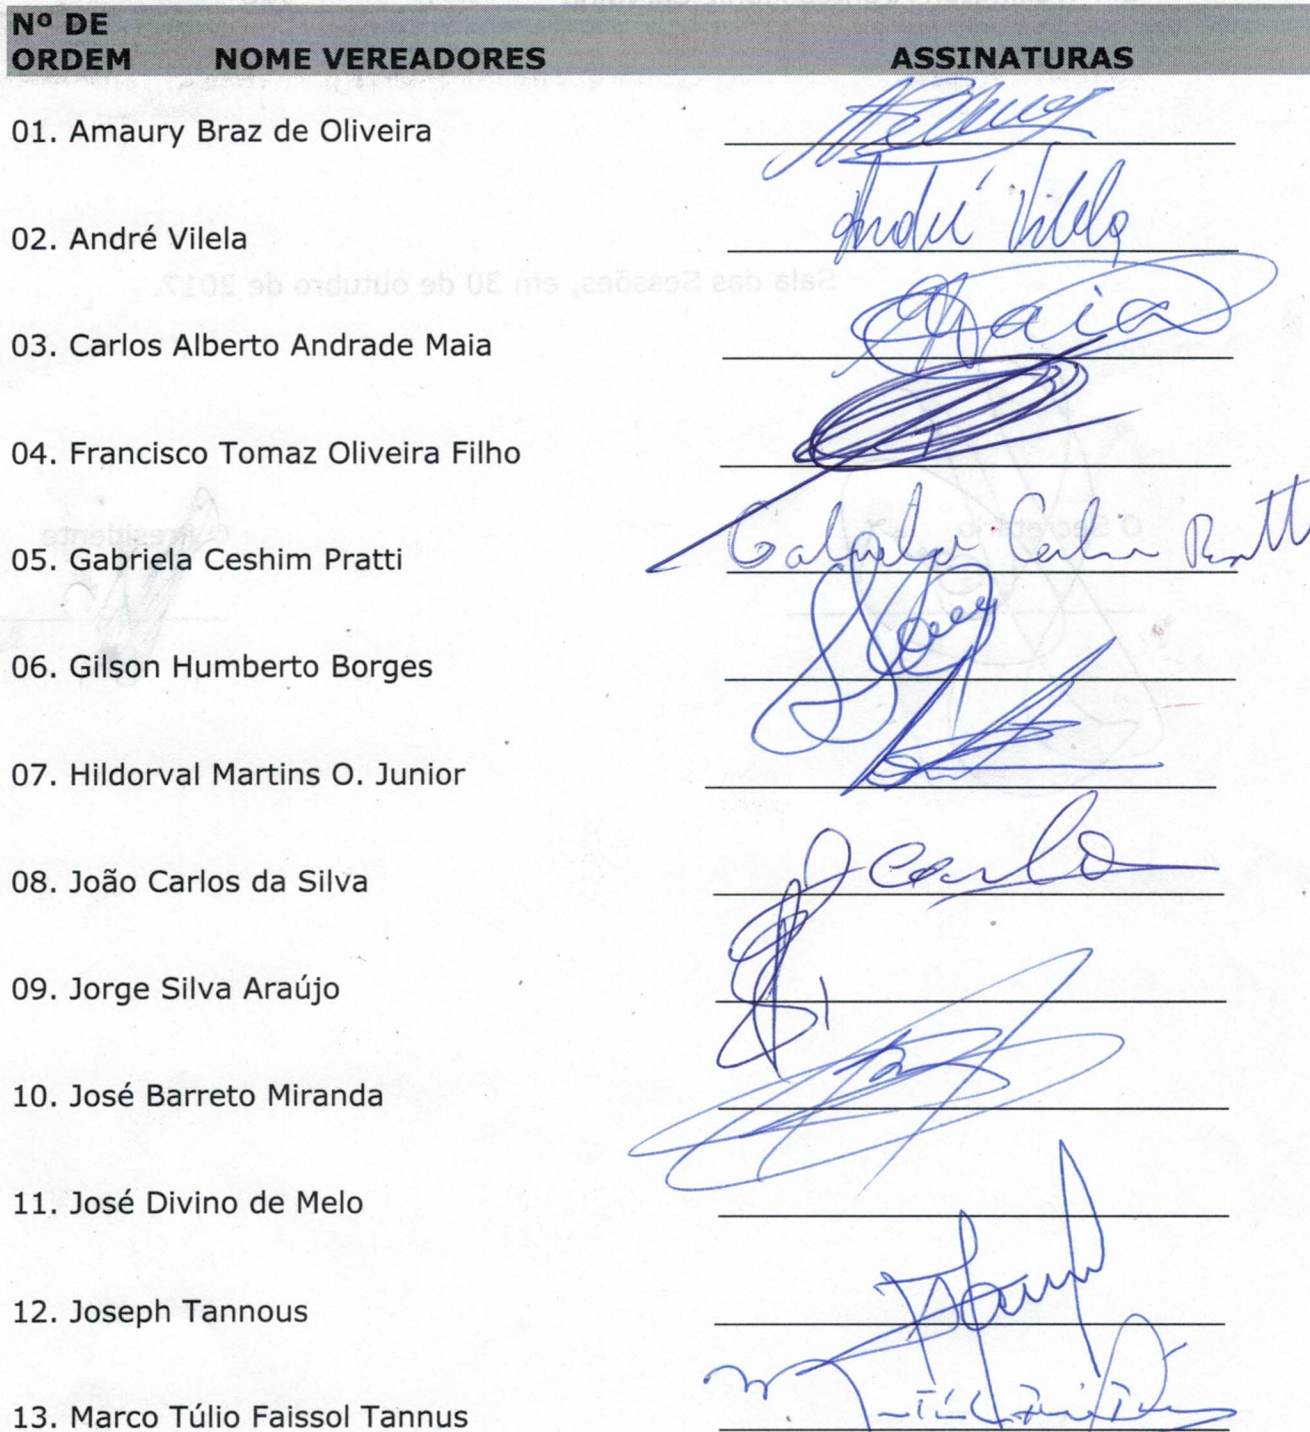 Nº DE
ORDEM NOME VEREADORES ASSINATURAS
01. Amaury Braz de Oliveira
02. André Vilela André Vilela
Sala das Sessões, em 30 de outubro de 2017.
03. Carlos Alberto Andrade Maia Maia
04. Francisco Tomaz Oliveira Filho
O Secretário O Presidente
05. Gabriela Ceshim Pratti Gabriela Ceshim Pratti
06. Gilson Humberto Borges
07. Hildorval Martins O. Junior
08. João Carlos da Silva J Carlo
09. Jorge Silva Araújo
10. José Barreto Miranda
11. José Divino de Melo
12. Joseph Tannous
13. Marco Túlio Faissol Tannus